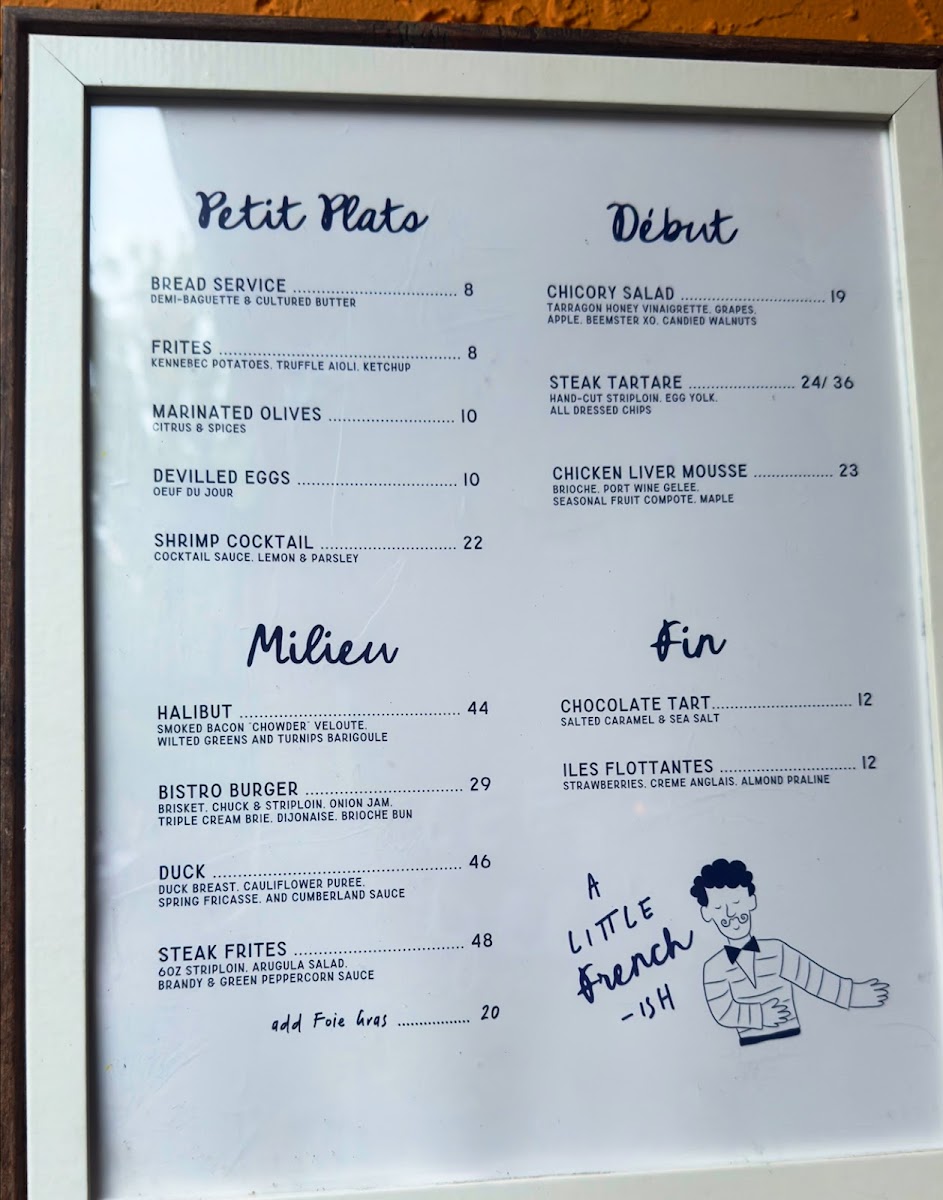 Petit Plats
BREAD SERVICE ........................................ 8
DEMI-BAGUETTE & CULTURED BUTTER
FRITES ........................................ 8
KENNEBEC POTATOES, TRUFFLE AIOLI, KETCHUP
MARINATED OLIVES ........................... 10
CITRUS & SPICES
DEVILLED EGGS .................................. 10
OEUF DU JOUR
SHRIMP COCKTAIL ............................. 22
COCKTAIL SAUCE, LEMON & PARSLEY
Début
CHICORY SALAD ............................... 19
TARRAGON HONEY VINAIGRETTE, GRAPES,
APPLE, BEEMSTER XO, CANDIED WALNUTS
STEAK TARTARE ...................... 24/ 36
HAND-CUT STRIPLOIN, EGG YOLK,
ALL DRESSED CHIPS
CHICKEN LIVER MOUSSE ................ 23
BRIOCHE, PORT WINE GELEE,
SEASONAL FRUIT COMPOTE, MAPLE
Milieu
HALIBUT ............................................. 44
SMOKED BACON "CHOWDER" VELOUTE,
WILTED GREENS AND TURNIPS BARIGOULE
BISTRO BURGER ................................ 29
BRISKET, CHUCK & STRIPLOIN, ONION JAM,
TRIPLE CREAM BRIE, DIJONAISE, BRIOCHE BUN
DUCK .................................................. 46
DUCK BREAST, CAULIFLOWER PUREE,
SPRING FRICASSE, AND CUMBERLAND SAUCE
STEAK FRITES .................................. 48
6OZ STRIPLOIN, ARUGULA SALAD,
BRANDY & GREEN PEPPERCORN SAUCE
add Foie Gras ................ 20
Fin
CHOCOLATE TART............................. 12
SALTED CARAMEL & SEA SALT
ILES FLOTTANTES ............................ 12
STRAWBERRIES, CREME ANGLAIS, ALMOND PRALINE
A
LITTLE
French
-ISH